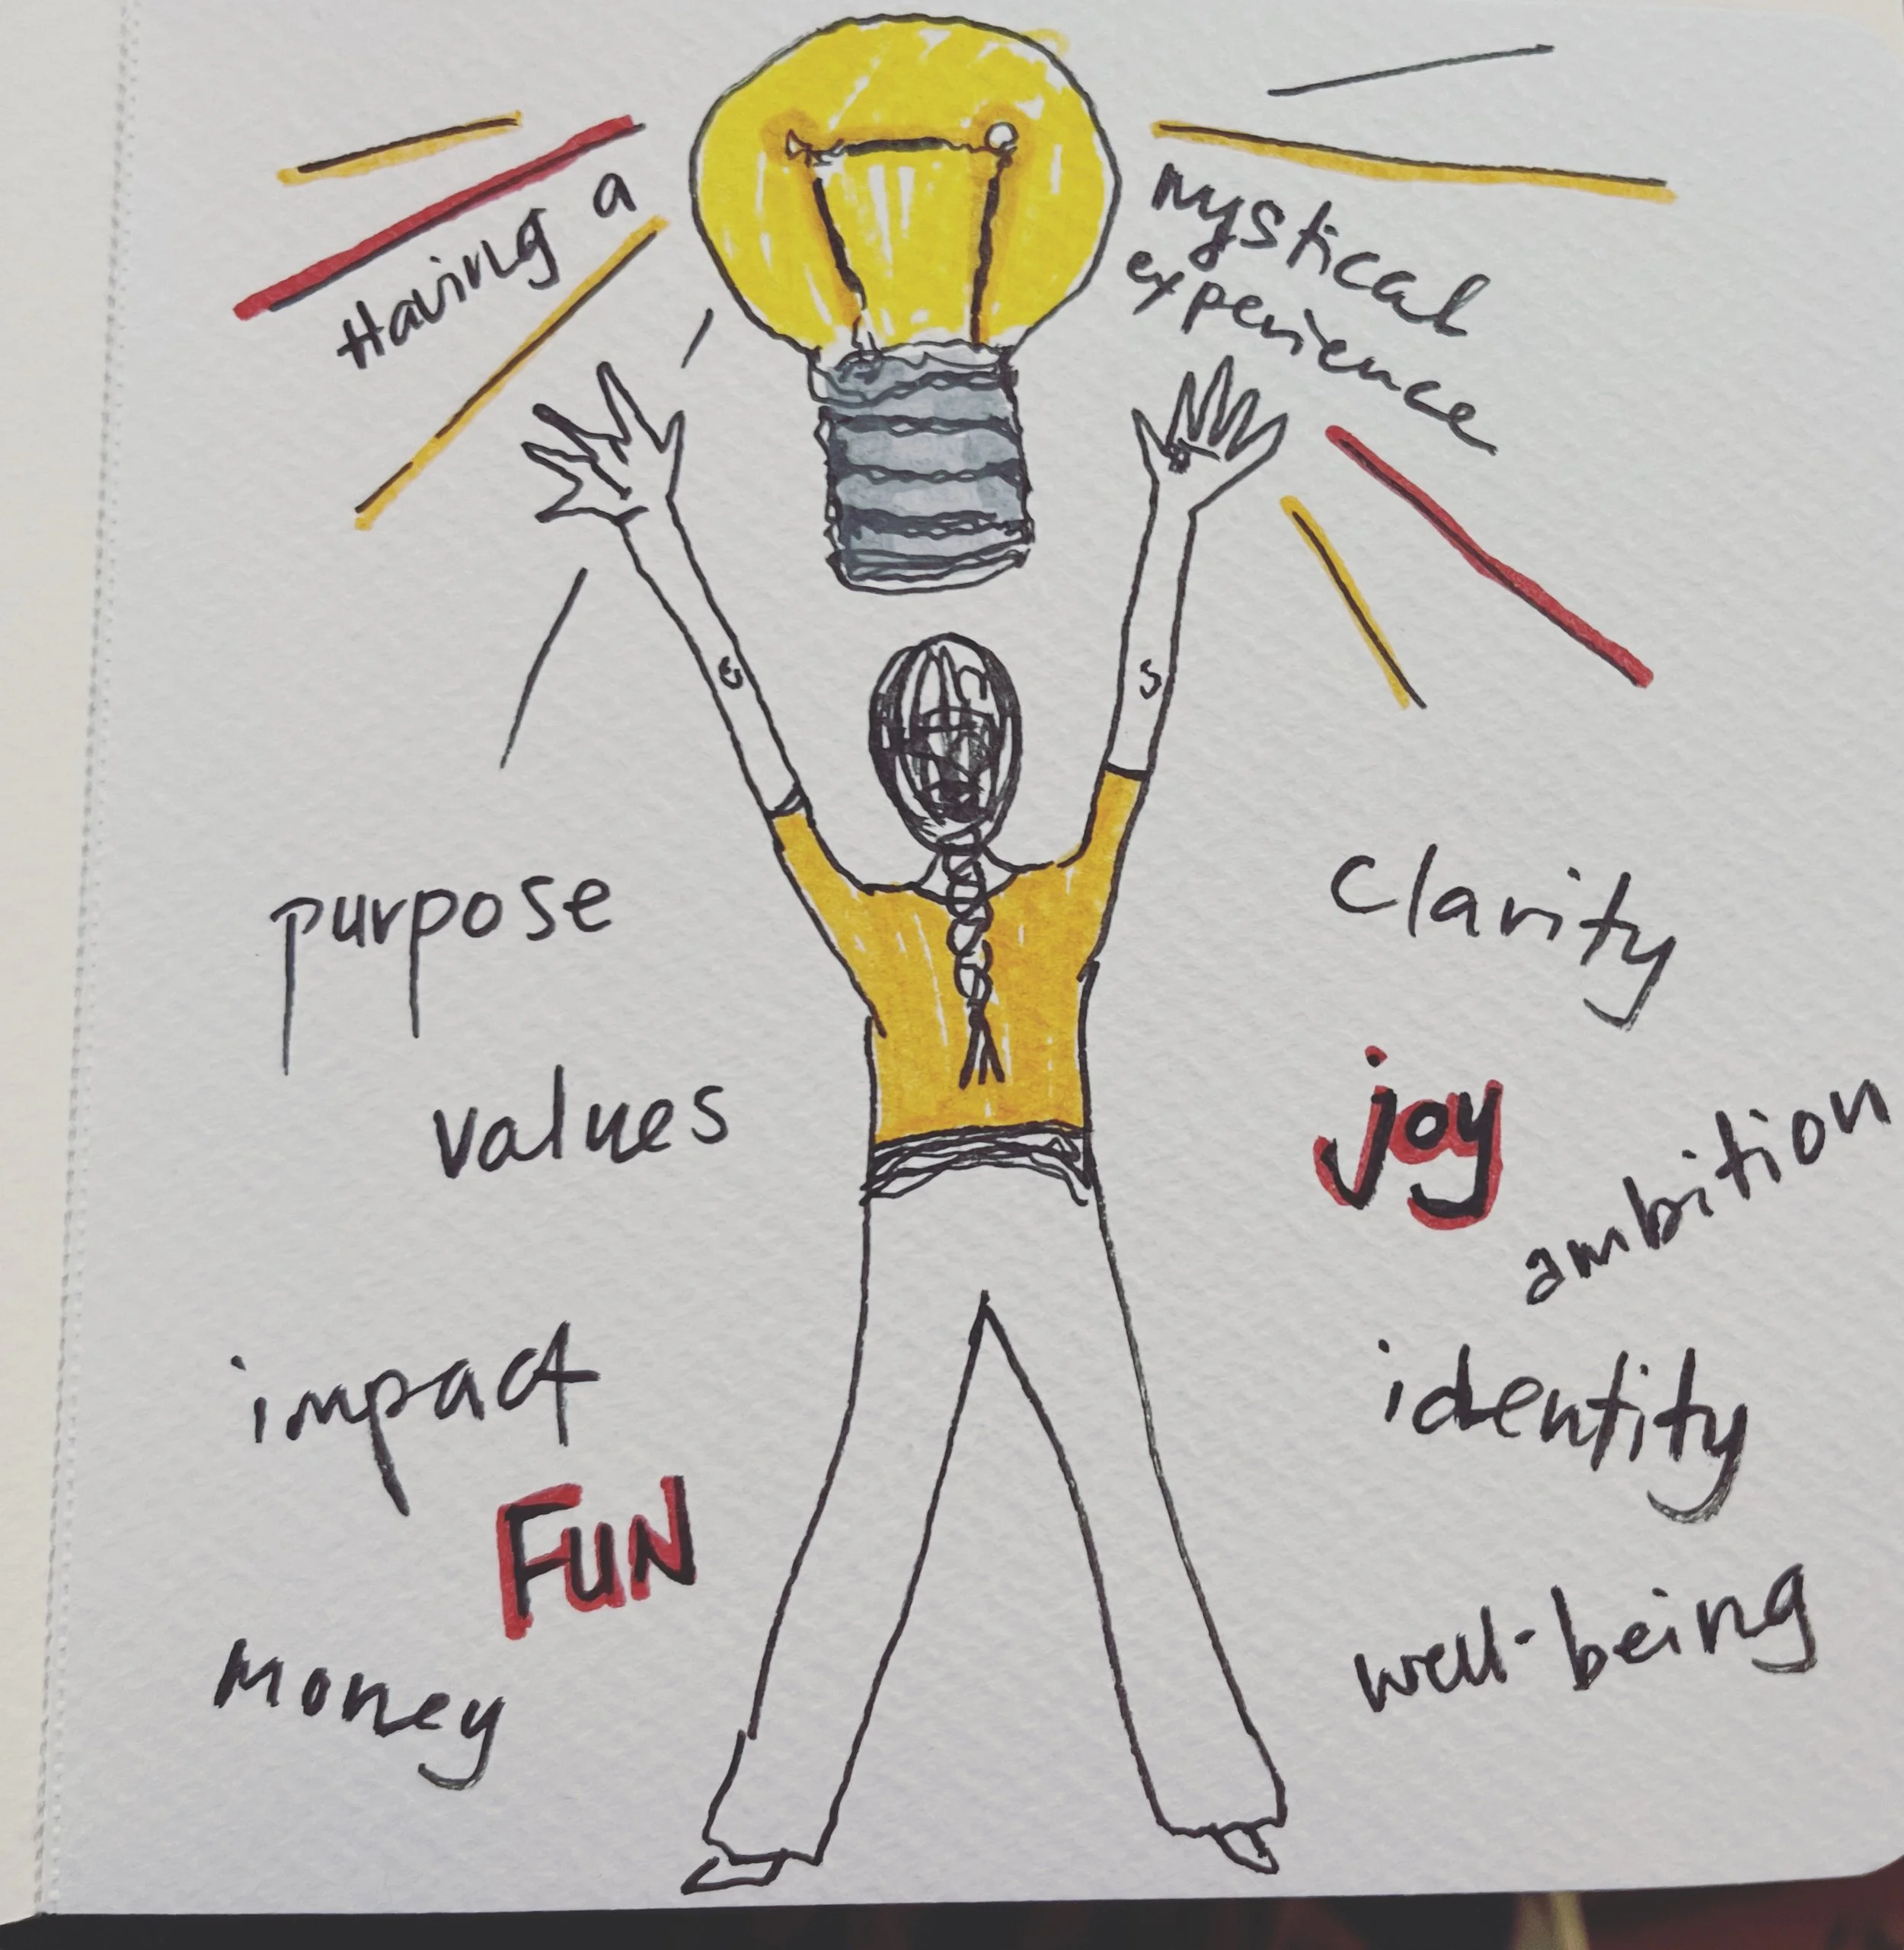 Having a
mystical
experience
purpose
clarity
values
joy
ambition
impact
identity
FUN
money
well-being